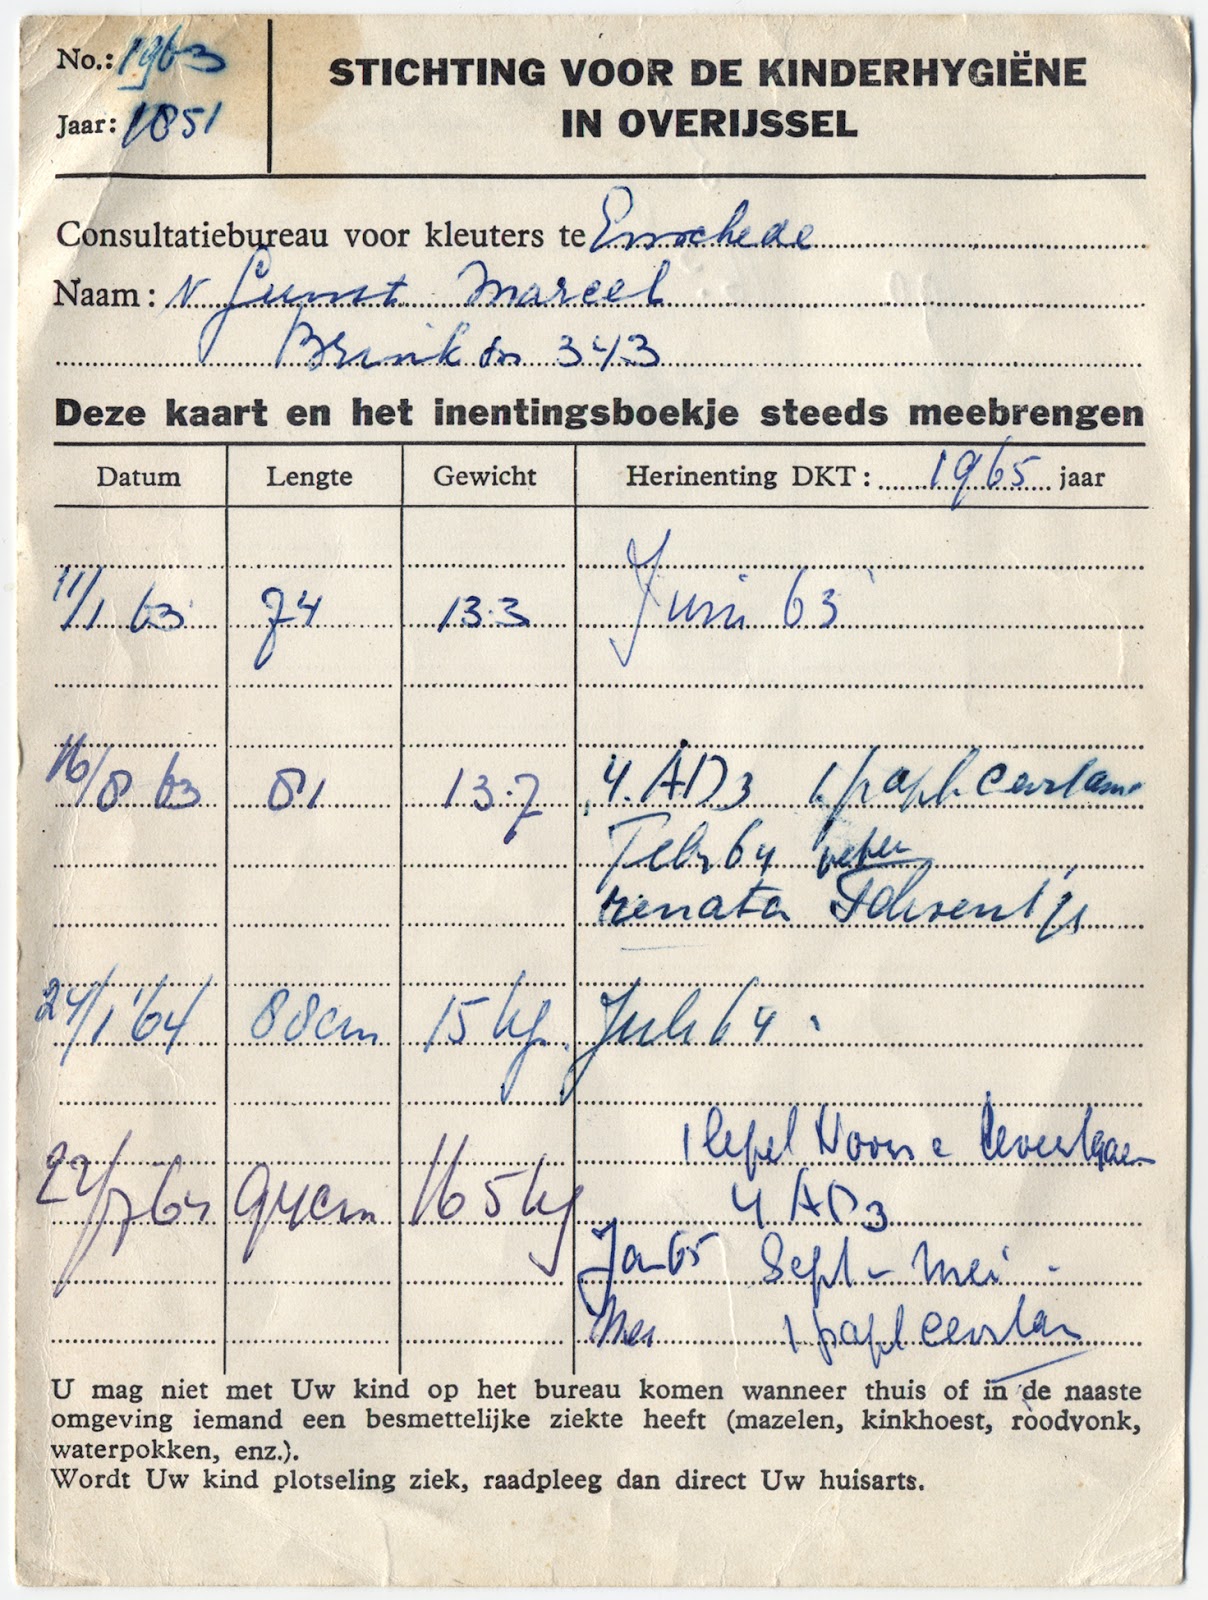 No.: 1963
Jaar: 1851
STICHTING VOOR DE KINDERHYGIËNE
IN OVERIJSSEL
Consultatiebureau voor kleuters te Enschede
Naam: v Gunst Marcel
Brink 343
Deze kaart en het inentingsboekje steeds meebrengen
Datum Lengte Gewicht Herinenting DKT: 1965 jaar
11/1 63 74 13.3 Juni 63
16/8 63 81 13.7 4 AD3 1 papl
Febr 64
renata
24/1 '64 88cm 15 kg Juli 64
1 lepel
22/7 64 94cm 16 5 kg 4 AD3
Jan 65 Sept - Mei
1 papl
U mag niet met Uw kind op het bureau komen wanneer thuis of in de naaste
omgeving iemand een besmettelijke ziekte heeft (mazelen, kinkhoest, roodvonk,
waterpokken, enz.).
Wordt Uw kind plotseling ziek, raadpleeg dan direct Uw huisarts.